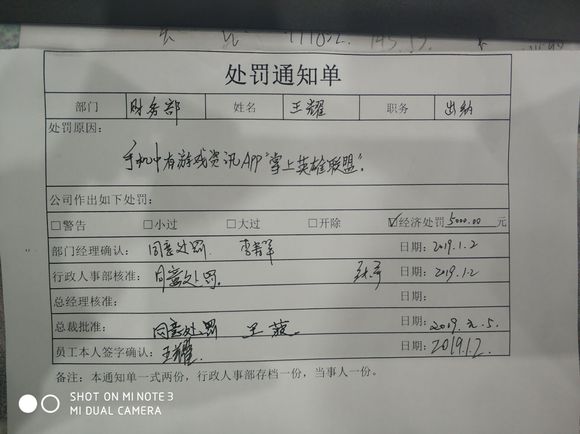 处罚通知单
部门 财务部 姓名 王耀 职务 出纳
处罚原因：
手机中有游戏资讯APP"掌上英雄联盟"。
公司作出如下处罚：
□警告 □小过 □大过 □开除 ☑经济处罚 5000.00 元
部门经理确认： 同意处罚 李青军 日期：2019.1.2
行政人事部核准： 同意处罚。 日期：2019.1.2
总经理核准： 日期：
总裁批准： 同意处罚 王 日期：2019.元.5.
员工本人签字确认： 王耀 日期：2019.1.2.
备注：本通知单一式两份，行政人事部存档一份，当事人一份。
SHOT ON MI NOTE 3
MI DUAL CAMERA